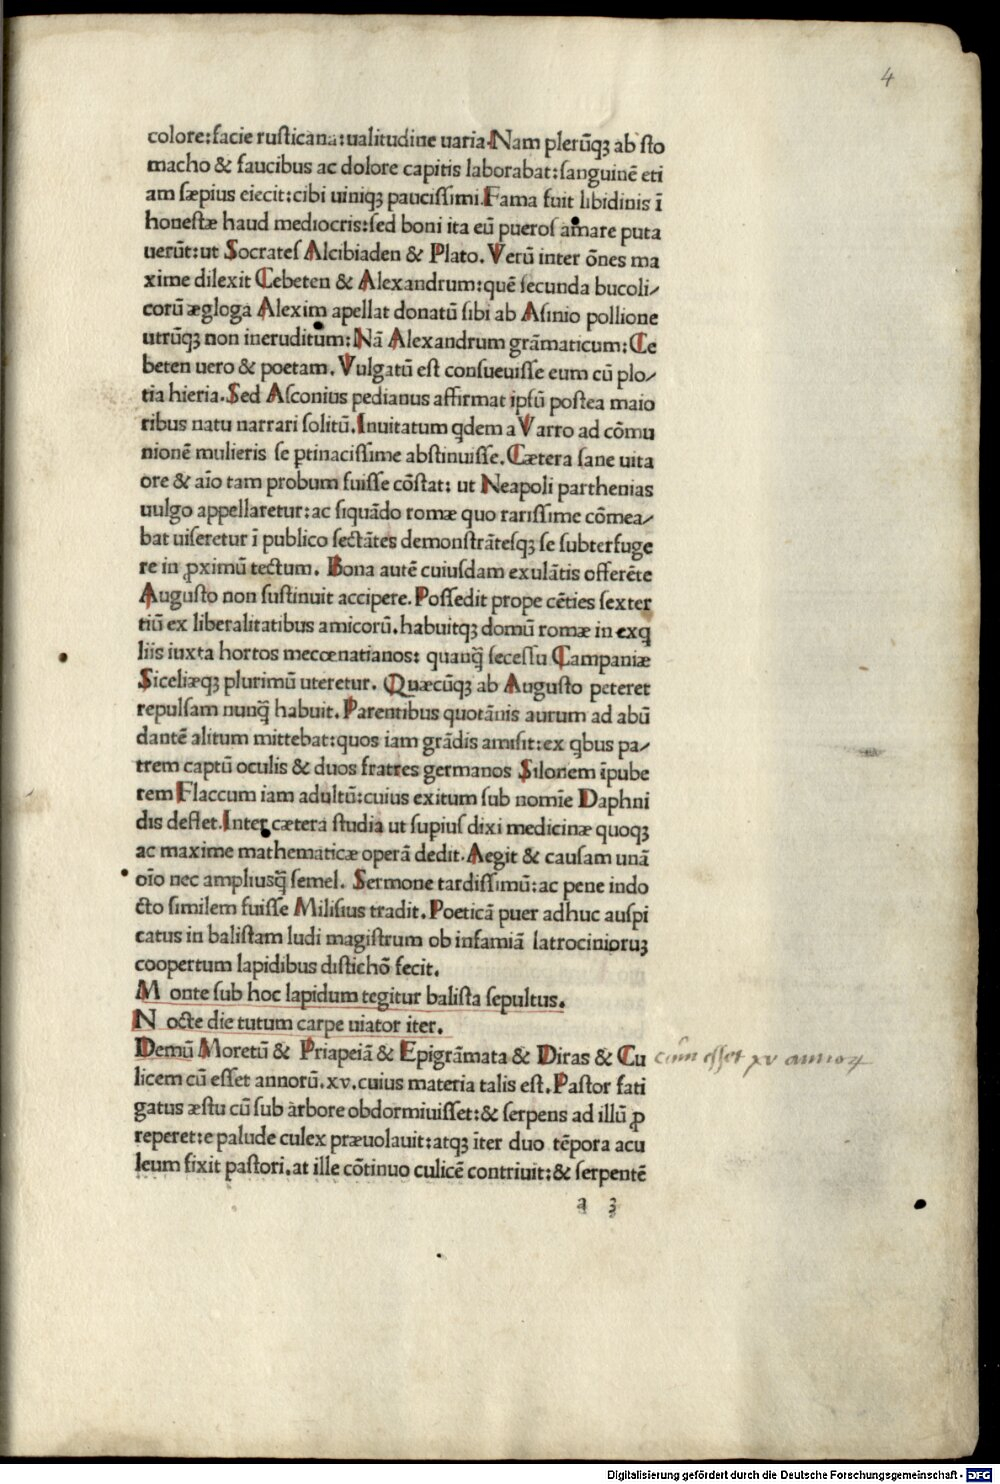 4
colore:facie rusticana:ualitudine uaria.Nam plerūqꝫ ab sto
macho & faucibus ac dolore capitis laborabat:sanguinē eti
am sæpius eiecit:cibi uiniqꝫ paucissimi.Fama fuit libidinis ī
honestæ haud mediocris:sed boni ita eū pueros amare puta
uerūt:ut Socrates Alcibiaden & Plato. Verū inter ōnes ma
xime dilexit Cebeten & Alexandrum:quē secunda bucoli/
corū ægloga Alexim apellat donatū sibi ab Asinio pollione
utrūqꝫ non ineruditum:Nā Alexandrum grāmaticum:Ce
beten uero & poetam. Vulgatū est consueuisse eum cū plo/
tia hieria.Sed Asconius pedianus affirmat ipsū postea maio
ribus natu narrari solitū.Inuitatum qdem a Varro ad cōmu
nionē mulieris se ꝑtinacissime abstinuisse.Cætera sane uita
ore & aīo tam probum fuisse cōstat: ut Neapoli parthenias
uulgo appellaretur:ac siquādo romæ quo rarissime cōmea/
bat uiseretur ī publico sectātes demonstrātesqꝫ se subterfuge
re in ꝓximū tectum. Bona autē cuiusdam exulātis offerēte
Augusto non sustinuit accipere.Possedit prope cēties sexter
tiū ex liberalitatibus amicorū.habuitqꝫ domū romæ in exq
liis iuxta hortos mecœnatianos: quanq̄ secessu Campaniæ
Siceliæqꝫ plurimū uteretur. Quæcūqꝫ ab Augusto peteret
repulsam nunq̄ habuit.Parentibus quotānis aurum ad abū
dantē alitum mittebat:quos iam grādis amisit:ex qbus pa/
trem captū oculis & duos fratres germanos Silonem īpube
rem Flaccum iam adultū:cuius exitum sub nomīe Daphni
dis deflet.Inter cætera studia ut supius dixi medicinæ quoqꝫ
ac maxime mathematicæ operā dedit.Aegit & causam unā
oīo nec ampliusq̄ semel. Sermone tardissimū:ac pene indo
cto similem fuisse Milisius tradit.Poeticā puer adhuc auspi
catus in balistam ludi magistrum ob infamiā latrocinioruꝫ
coopertum lapidibus distichō fecit.
M onte sub hoc lapidum tegitur balista sepultus.
N octe die tutum carpe uiator iter.
Demū Moretū & Priapeiā & Epigrāmata & Diras & Cu
cum esset xv annorꝝ
licem cū esset annorū.xv.cuius materia talis est.Pastor fati
gatus æstu cū sub arbore obdormiuisset:& serpens ad illū ꝓ
reperet:e palude culex præuolauit:atqꝫ īter duo tēpora acu
leum fixit pastori.at ille cōtinuo culicē contriuit:& serpentē
a 3
Digitalisierung gefördert durch die Deutsche Forschungsgemeinschaft - DFG